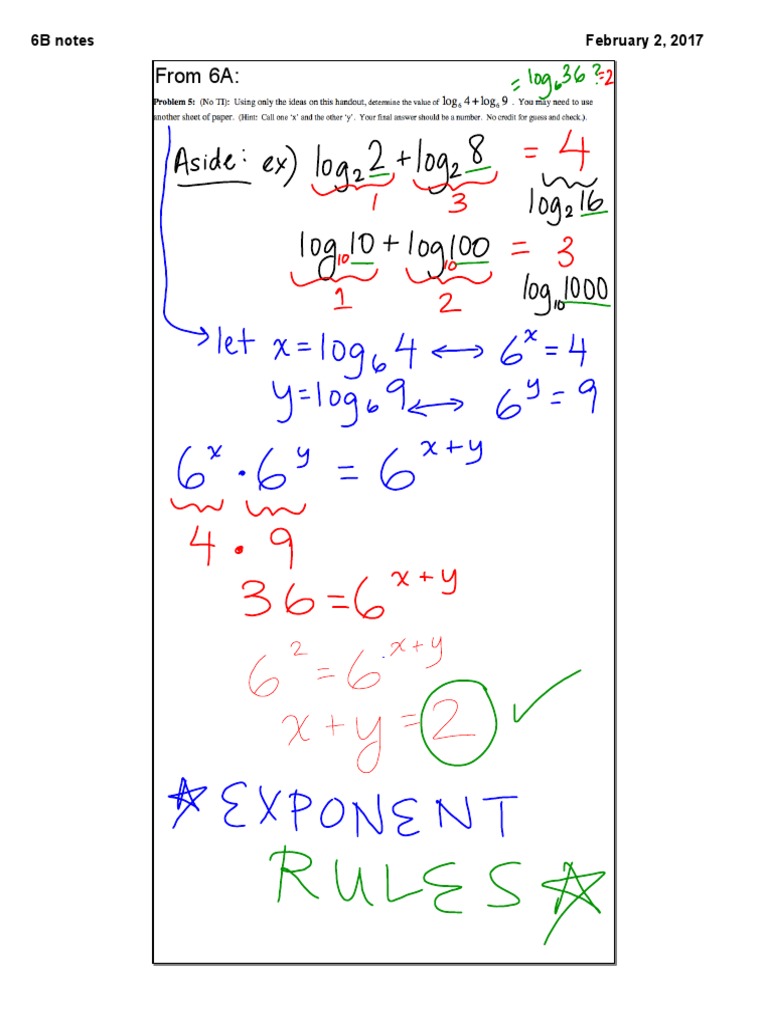 6B notes February 2, 2017
From 6A: = log₆36 ?=2
Problem 5: (No TI): Using only the ideas on this handout, determine the value of log₆ 4 + log₆ 9 . You may need to use
another sheet of paper. (Hint: Call one ‘x’ and the other ‘y’. Your final answer should be a number. No credit for guess and check.).
Aside: ex) log₂2 + log₂8 = 4
1 3 log₂16
log₁₀10 + log₁₀100 = 3
1 2 log₁₀1000
let x = log₆4 ↔ 6ˣ = 4
y = log₆9 ↔ 6ʸ = 9
6ˣ · 6ʸ = 6ˣ⁺ʸ
4 · 9
36 = 6ˣ⁺ʸ
6² = 6ˣ⁺ʸ
x + y = 2 ✓
☆ EXPONENT
RULES ☆